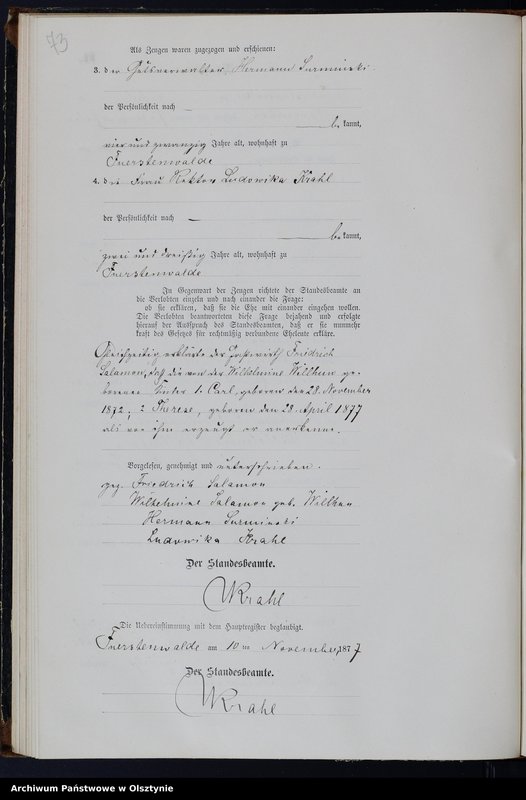 73
Als Zeugen waren zugezogen und erschienen:
3. der Gutsverwalter Hermann Surminski
der Persönlichkeit nach
be kannt,
vier und zwanzig Jahre alt, wohnhaft zu
Fuerstenwalde
4. die Frau Rektor Ludowika Krahl
der Persönlichkeit nach
be kannt,
zwei und dreißig Jahre alt, wohnhaft zu
Fuerstenwalde
In Gegenwart der Zeugen richtete der Standesbeamte an
die Verlobten einzeln und nach einander die Frage:
ob sie erklären, daß sie die Ehe mit einander eingehen wollen.
Die Verlobten beantworteten diese Frage bejahend und erfolgte
hierauf der Ausspruch des Standesbeamten, daß er sie nunmehr
kraft des Gesetzes für rechtmäßig verbundene Eheleute erkläre.
Gleichzeitig erklärte der Gastwirth Friedrich
Salamon, daß die von der Wilhelmine Willhun ge-
borenen Kinder 1. Carl, geboren den 28. November
1872, 2 Therese, geboren den 28. April 1877
als von ihm erzeugt er anerkenne.
Vorgelesen, genehmigt und unterschrieben.
gez. Friedrich Salamon
Wilhelmine Salamon geb. Willhun
Hermann Surminski
Ludowika Krahl
Der Standesbeamte.
Krahl
Die Uebereinstimmung mit dem Hauptregister beglaubigt.
Fuerstenwalde am 10 ten November 1877
Der Standesbeamte.
Krahl
Archiwum Państwowe w Olsztynie